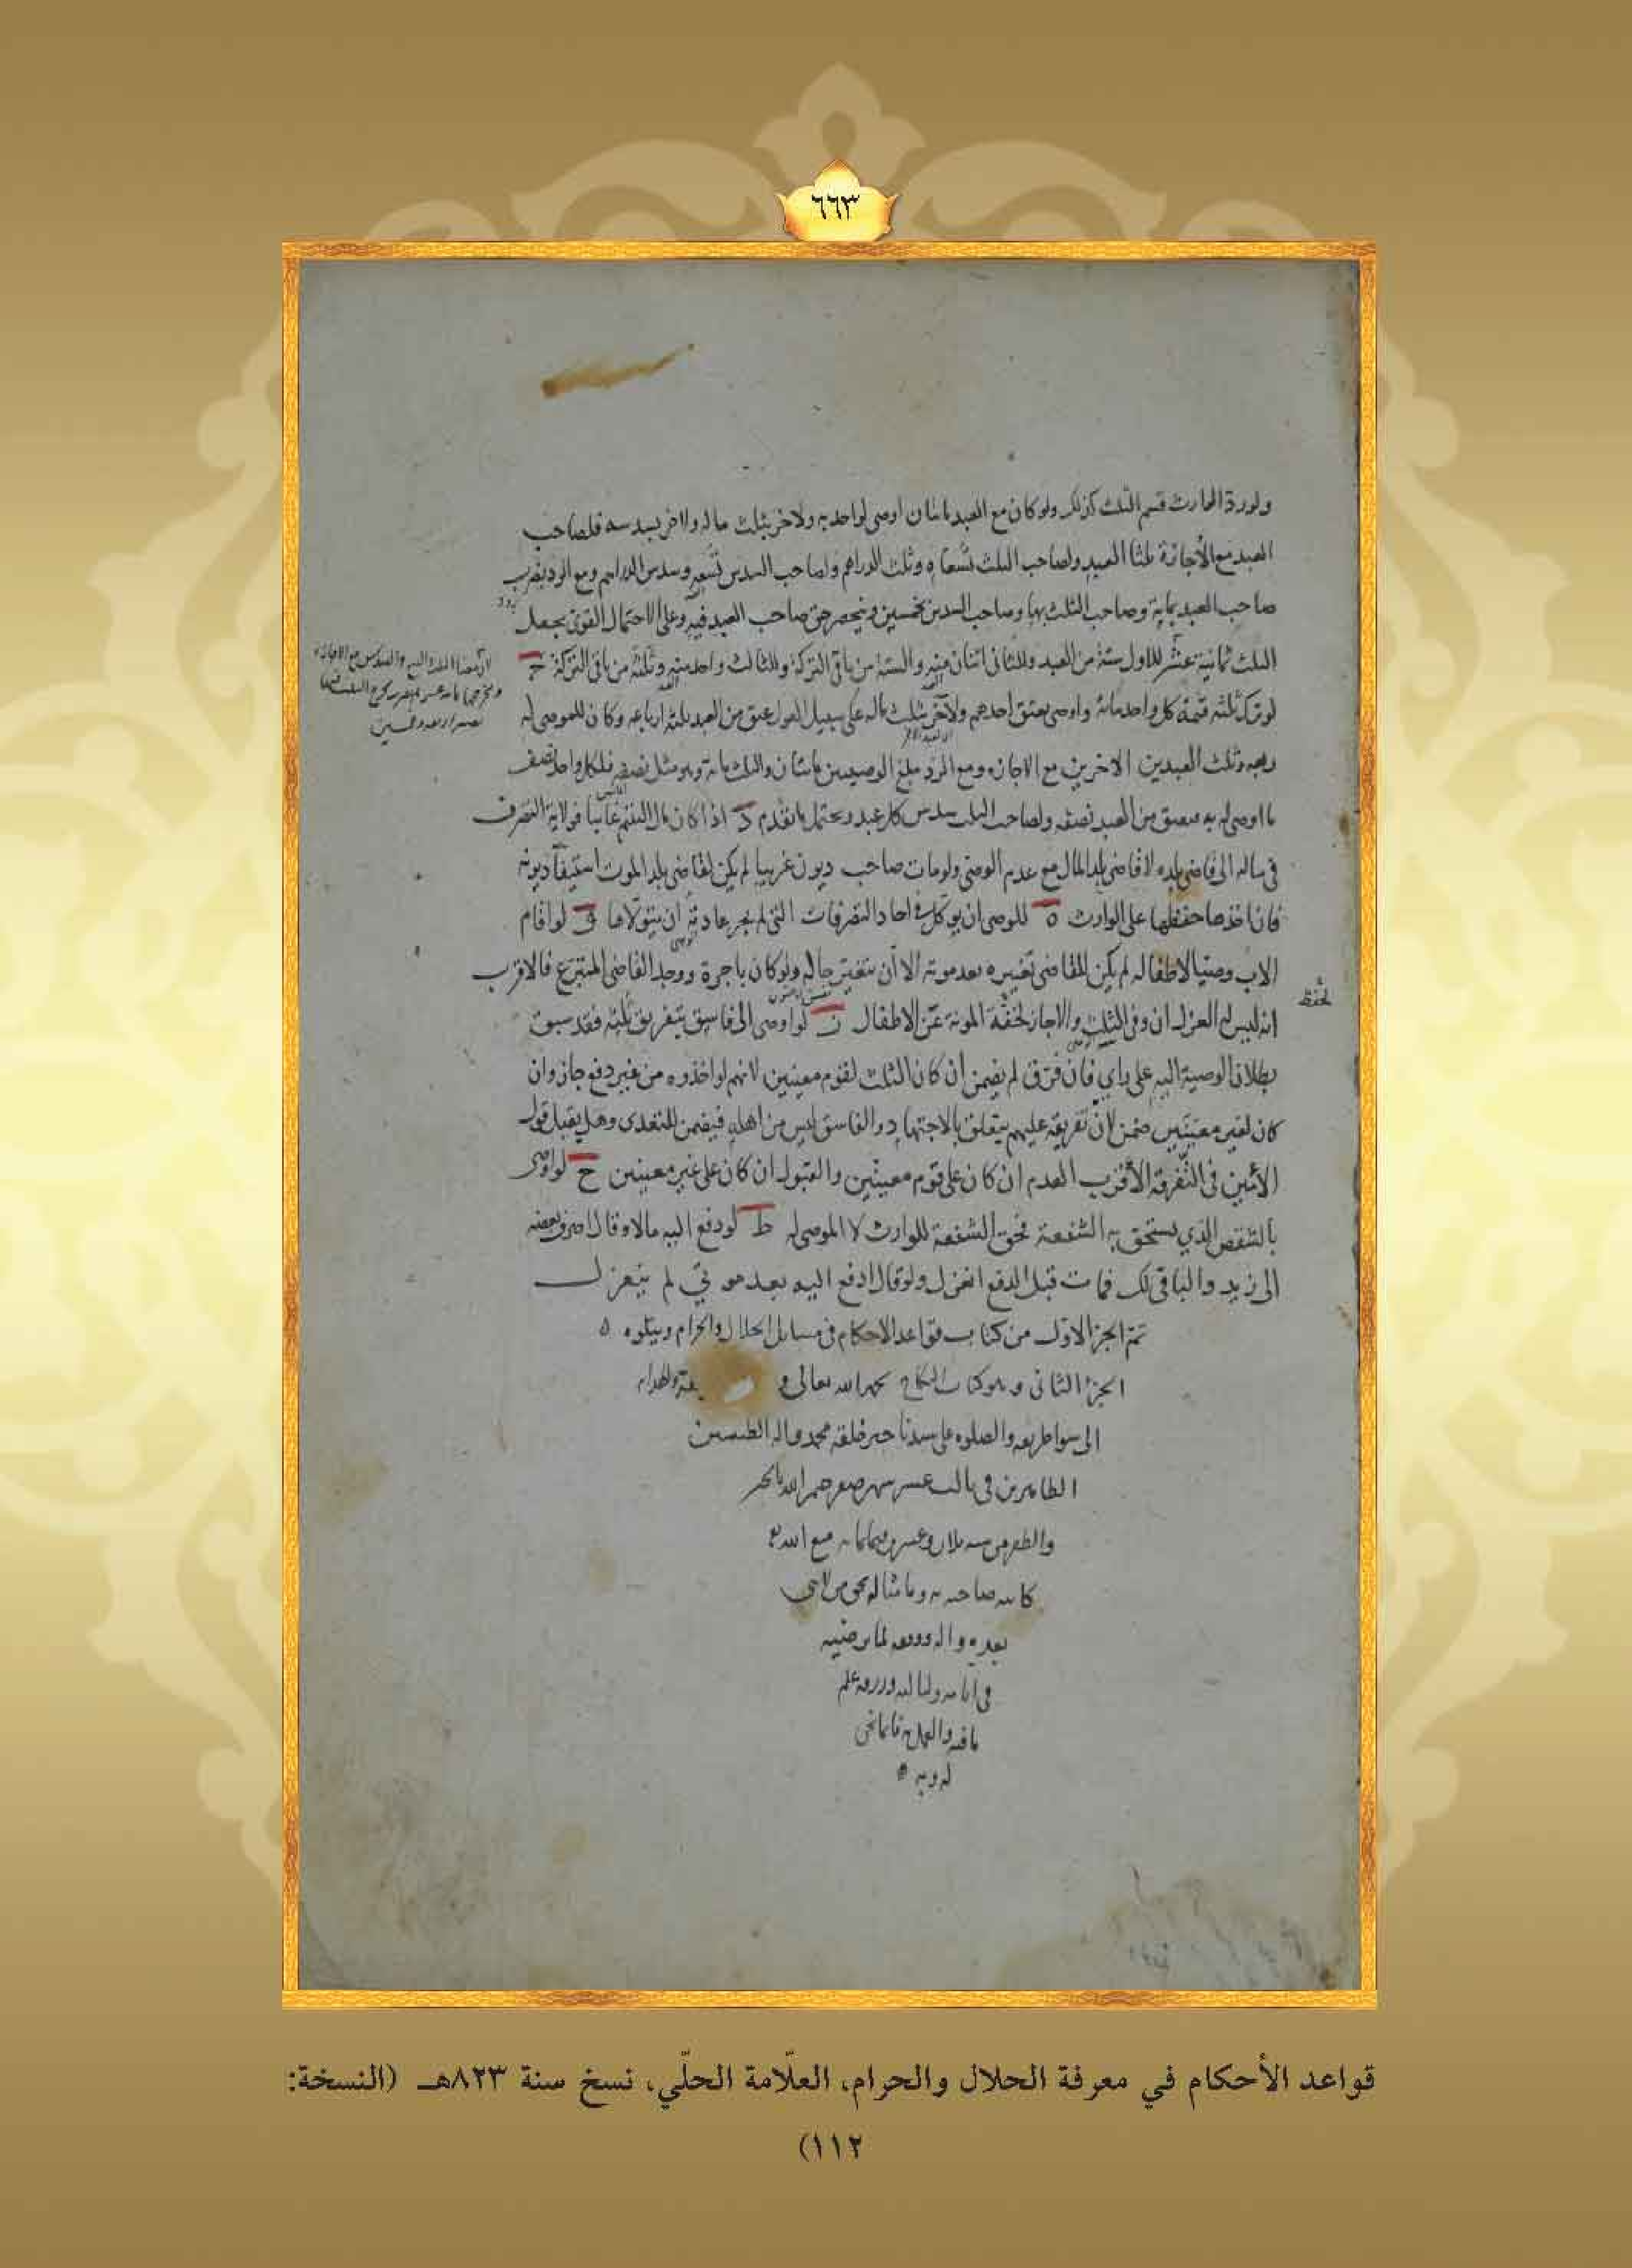 ٦٦٣
ولو رد الوارث قسم الثلث كذلك ولو كان مع العبد مائتان اوصى لواحد به ولاخر بثلث ماله ولاخر بسدسه فلصاحب
العبد مع الأجازة ثلثا العبد ولصاحب الثلث تسعاه وثلث الدراهم ولصاحب السدس تسعه وسدس الدراهم ومع الرد يضرب
صاحب العبد بماية وصاحب الثلث بها وصاحب السدس بخمسين وينحصر حق صاحب العبد فيه وعلى الاحتمال القوي يجعل
الثلث ثمانية عشر للاول ستة من العبد وللثاني اثنان منه والستة من باقي التركة وللثالث واحد منه وثلثة من باقي التركة ج
لو ترك ثلثة قيمة كل واحد مائة واوصى بعتق احدهم ولآخر بثلث ماله على سبيل العول عتق من العبد ثلثة ارباعه وكان للموصى له
ربعه وثلث العبدين الاخرين مع الاجازه ومع الرد مبلغ الوصيتين مائتان والثلث مائة وهو مثل نصفه فلكل واحد نصف
ما اوصى له به فيعتق من العبد نصفه ولصاحب الثلث سدس كل عبد ويحتمل ما تقدم د اذا كان مال اليتيم غائبا فولاية التصرف
في ماله الى قاضي بلده لا قاضي بلد المال مع عدم الوصي ولو مات صاحب ديون غريبا لم يكن لقاضي بلد الموت استيفآ ديونه
فان اخذها حفظها على الوارث ه للوصي ان يوكل في احاد التصرفات التي لم يجر عادته ان يتولاها و لو اقام
الاب وصيا لاطفاله لم يكن للقاضي تغييره بعد موته الا أن يتغير حاله ولو كان باجرة ووجد القاضي المتبرع فالاقرب
انه ليس له العزل ان وفى الثلث والا جاز لحفظ المونة عن الاطفال ز لو اوصى الى فاسق بتفريق ثلثه فقد سبق
لحفظ
بطلان الوصية اليه على راي فان فرق لم يضمن ان كان الثلث لقوم معينين لانهم لو اخذوه من غير دفع جاز وان
كان لغير معينين ضمن لان تفريقه عليهم يتعلق بالاجتهاد والفاسق ليس من اهله فيضمن للتعدي وهل يقبل قول
الأمين في التفرقة الأقرب العدم ان كان على قوم معينين والقبول ان كان على غير معينين ح لو اوصى
بالشقص الذي يستحق به الشفعة فحق الشفعة للوارث لا الموصى له ط لو دفع اليه مالا وقال اصرف بعضه
الى زيد والباقي لك فمات قبل الدفع انعزل ولو قال ادفع اليه بعد موتي لم ينعزل
تم الجزء الاول من كتاب قواعد الاحكام في مسايل الحلال والحرام ويتلوه
الجزء الثاني وهو كتاب النكاح بحمد الله تعالى و
الى سوا طريقه والصلوه على سيدنا خير خلقه محمد واله الطيبين
الطاهرين في ثالث عشر شهر صفر ختم الله بالخير
والظفر من سنه ثلاث وعشرين وثمانمائه
قواعد الأحكام في معرفة الحلال والحرام، العلّامة الحلّي، نسخ سنة ٨٢٣هـ (النسخة:
١١٢)